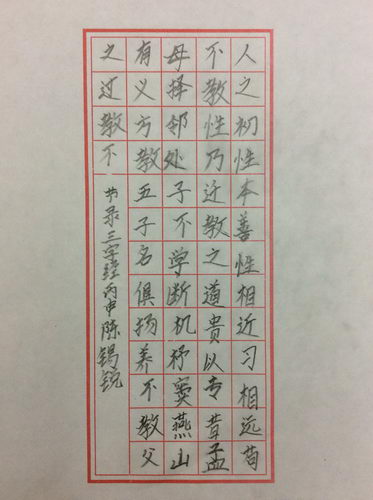 人之初性本善性相近习相远苟
不教性乃迁教之道貴以专昔孟
母择邻处子不学断机杼窦燕山
有义方教五子名俱扬养不教父
之过教不
书录三字经丙申陈锡